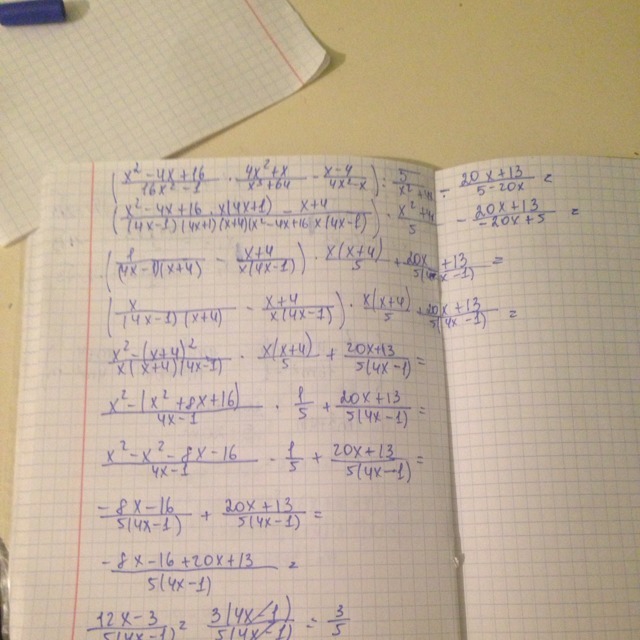 (x²-4x+16/16x²-1 · 4x²+x/x³+64 - x+4/4x²-x) : 5/x²+4x - 20x+13/5-20x =
(x²-4x+16 · x(4x+1)/(4x-1)(4x+1)(x+4)(x²-4x+16 - x+4/x(4x-1)) · x²+4x/5 - 20x+13/-20x+5 =
(1/(4x-1)(x+4) - x+4/x(4x-1)) · x(x+4)/5 + 20x+13/5(4x-1) =
(x/(4x-1)(x+4) - x+4/x(4x-1)) · x(x+4)/5 + 20x+13/5(4x-1) =
x²-(x+4)²/x(x+4)(4x-1) · x(x+4)/5 + 20x+13/5(4x-1) =
x²-(x²+8x+16)/4x-1 · 1/5 + 20x+13/5(4x-1) =
x²-x²-8x-16/4x-1 · 1/5 + 20x+13/5(4x-1) =
-8x-16/5(4x-1) + 20x+13/5(4x-1) =
-8x-16+20x+13/5(4x-1) =
12x-3/5(4x-1) = 3(4x-1)/5(4x-1) = 3/5